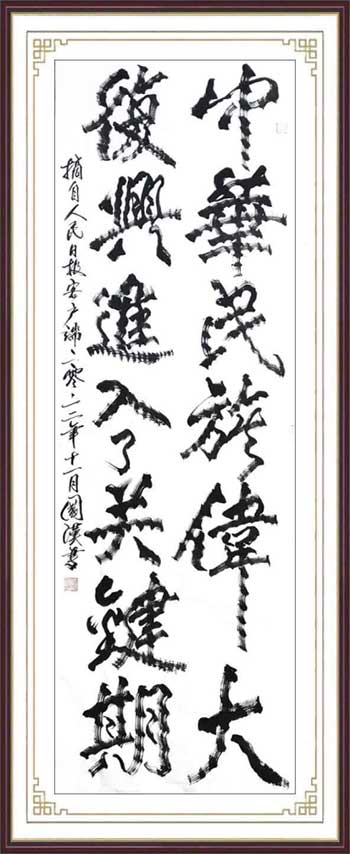 中華民族偉大
復興進入了关鍵期
摘自人民日报客户端二零二二年十一月國漢書